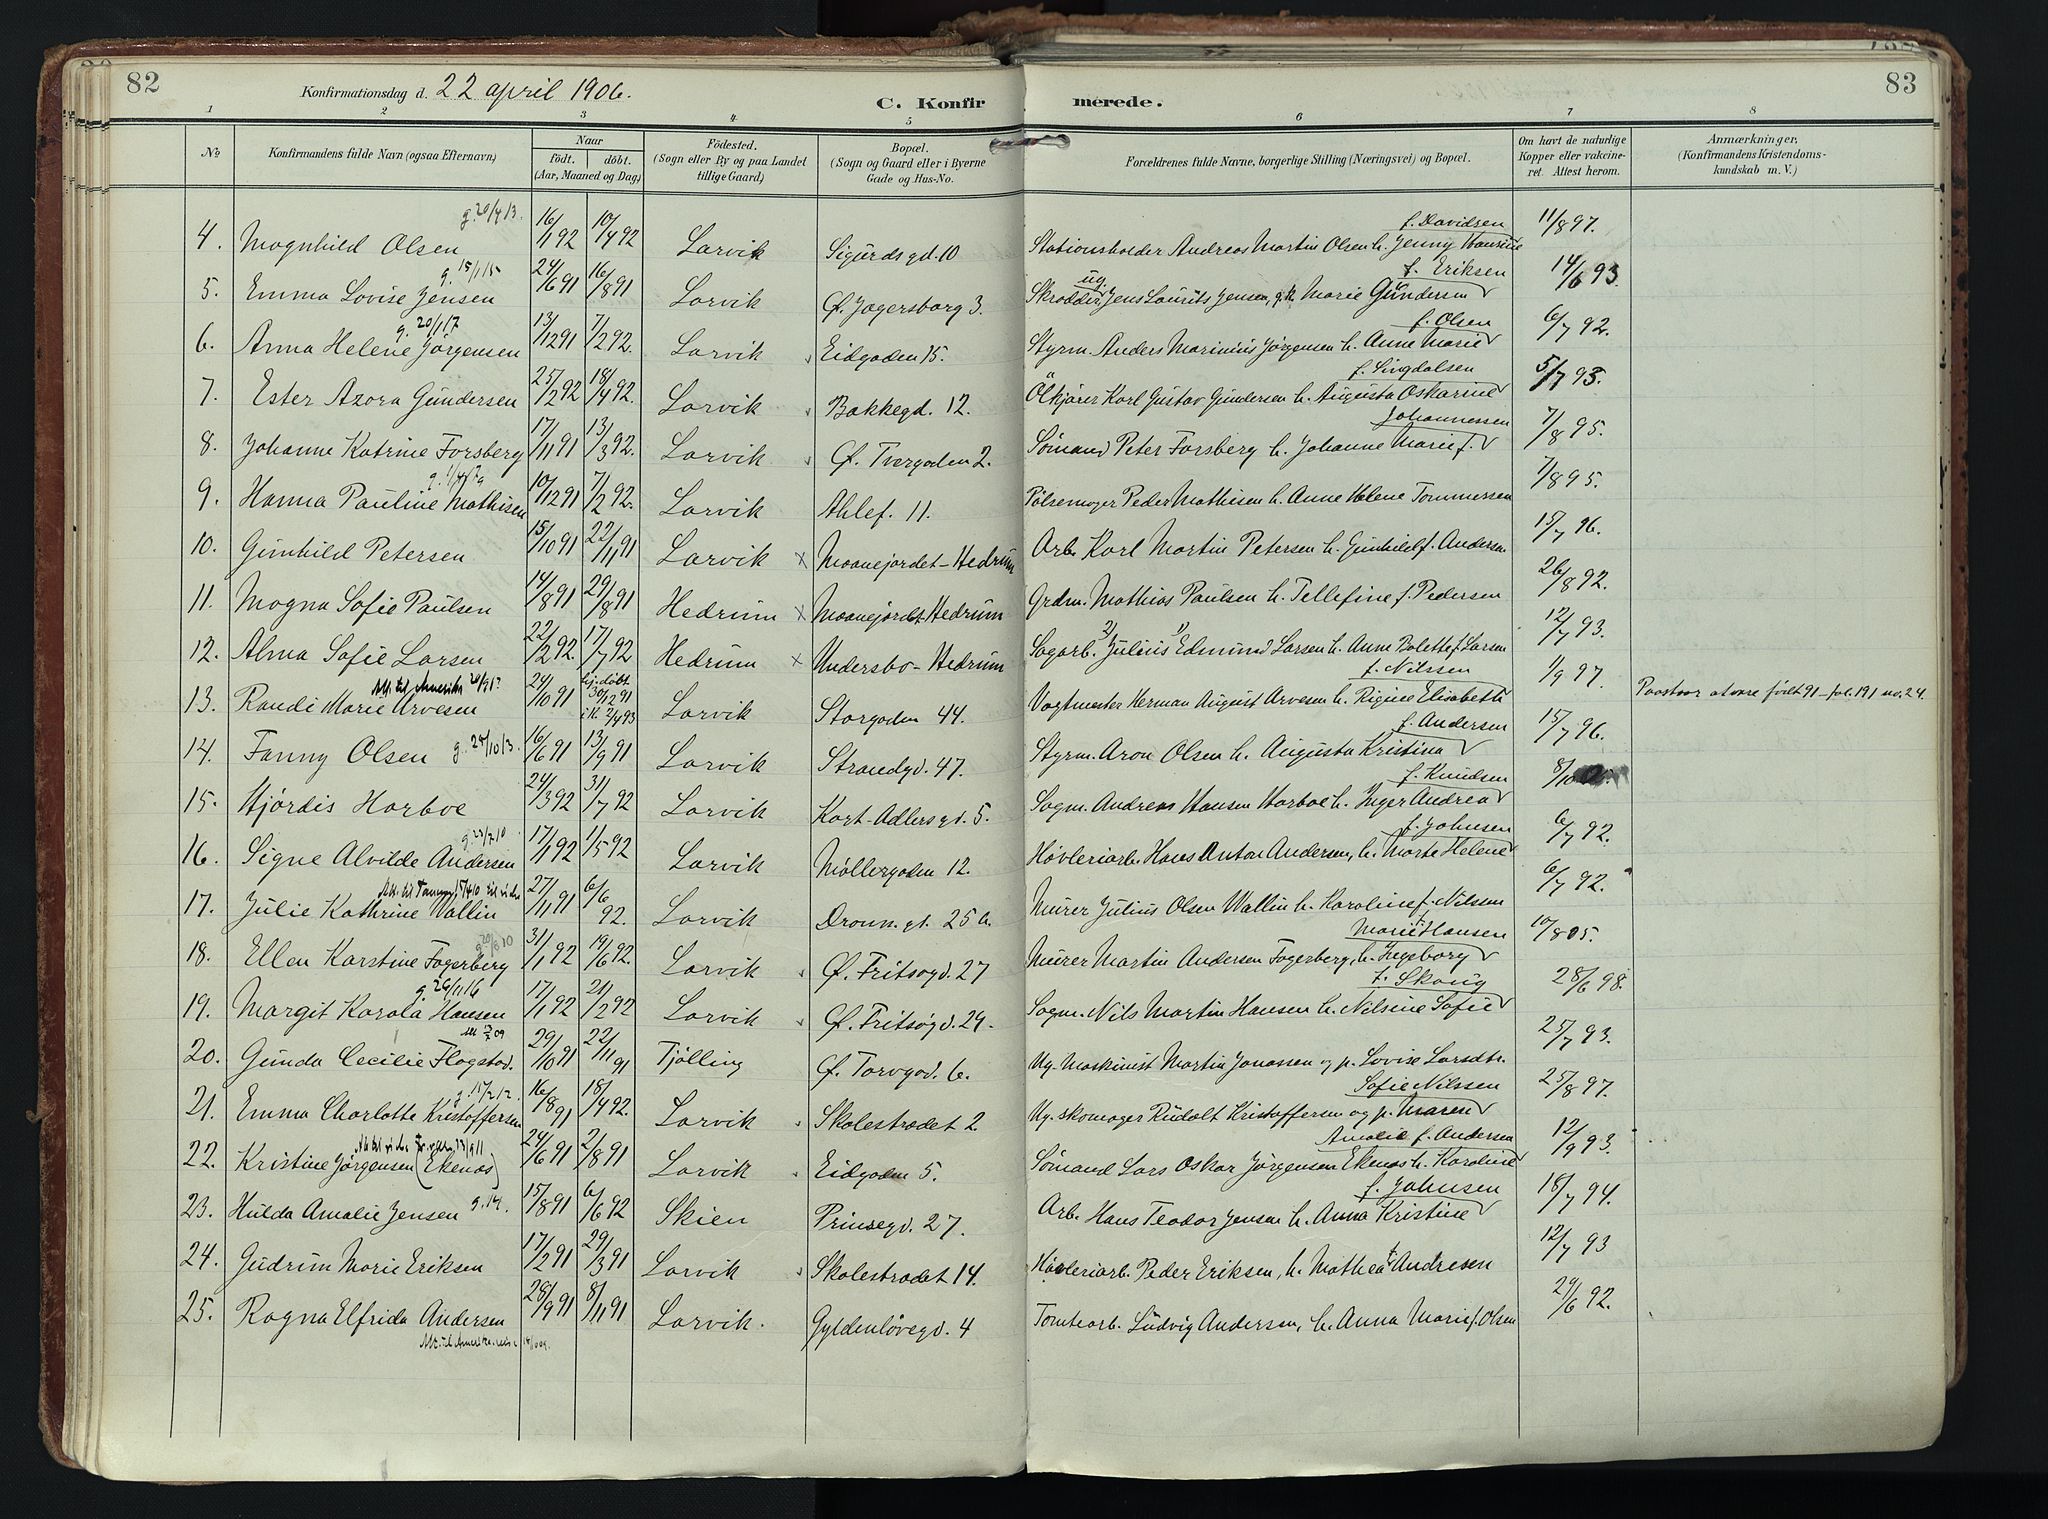 82
Konfirmationsdag d. 22 april 1906.
C. Konfirmerede.
83
1 2 3 4 5 6 7 8
No.
Konfirmandens fulde Navn (ogsaa Efternavn)
Naar
født. døbt.
(Aar, Maaned og Dag)
Fødested.
(Sogn eller By og paa Landet
tillige Gaard)
Bopæl.
(Sogn og Gaard eller i Byerne
Gade og Hus-No.
Forældrenes fulde Navne, borgerlige Stilling (Næringsvei) og Bopæl.
Om havt de naturlige
Kopper eller vakcine-
ret. Attest herom.
Anmærkninger,
(Konfirmandens Kristendoms-
kundskab m. V.)
g. 20/4 13. f. Davidsen
4. Magnhild Olsen 16/1 92 10/4 92 Larvik Sigurds gd. 10 Stationsholder Andreas Martin Olsen h. Jenny Hansine 11/8 97.
g. 15/1 15 ug. f. Eriksen
5. Emma Lovise Jensen 24/6 91 16/8 91 Larvik Ø. Jagersborg 3. Skrædder Jens Laurits Jensen, g. k. Marie Gundersen 14/6 93.
g. 20/1 17 f. Olsen
6. Anna Helene Jørgensen 13/12 91 7/2 92. Larvik Eidgaden 15. Styrm. Anders Marinius Jørgensen h. Anne Marie 6/7 92.
f. Lingdalsen
7. Ester Azora Gundersen 25/2 92 18/4 92. Larvik Bakkegd. 12. Ølkjører Karl Gustav Gundersen h. Augusta Oskarine 5/7 93.
Johannessen
8. Johanne Katrine Forsberg 17/11 91 13/3 92. Larvik Ø. Tvergaden 2. Sømand Peter Forsberg h. Johanne Marie f. 7/8 95.
9. Hanna Pauline Mathisen 10/12 91 7/2 92. Larvik Ahlef. 11. Pølsemager Peder Mathisen h. Anne Helene Tommessen 7/8 95.
10. Gunhild Petersen 15/10 91 22/11 91 Larvik x Moanejordet-Hedrum Arb. Karl Martin Petersen h. Gunhild f. Andersen 15/7 96.
11. Magna Sofie Paulsen 14/8 91 29/8 91 Hedrum x Moanejordet-Hedrum Grdm. Mathias Paulsen h. Tellefine f. Pedersen 26/8 92.
12. Alma Sofie Larsen 22/2 92. 17/7 92 Hedrum x Undersbo-Hedrum Sagarb. 2) Julius 1) Edmund Larsen h. Anne Bolette f. Larsen 12/7 93.
Att. til Amerika hj. døbt f. Nilssen
13. Randi Marie Arvesen 24/10 91 30/12 91 i K. 2/4 93 Larvik Storgaden 44. Vagtmester Herman August Arvesen h. Rigine Elisabeth 1/9 97. Paastaar at være født 91 - fol. 191 no. 24.
f. Andersen
14. Fanny Olsen g. 24/10 13. 16/6 91 13/9 91 Larvik Strandgd. 47. Styrm. Aron Olsen h. Augusta Kristina 15/7 96.
f. Knudsen
15. Hjørdis Harboe 24/3 92 31/7 92 Larvik Kort-Adlers gd. 5. Sagm. Andreas Hansen Harboe h. Inger Andrea 8/10
g. 23/7 10 f. Johnsen
16. Signe Alvilde Andersen 17/1 92 1/5 92 Larvik Møllergaden 12. Høvleriarb. Hans Anton Andersen, h. Marte Helene 6/7 92.
17. Julie Kathrine Wallin 27/11 91 6/6 92. Larvik Dronn. gt. 25 a. Murer Julius Olsen Wallin h. Karoline f. Nilssen 6/7 92.
g. 20/6 10 Marie f. Hansen
18. Ellen Karstine Fagerberg 31/1 92 19/6 92. Larvik Ø. Fritsøgd. 27 Murer Martin Andersen Fagerberg, h. Ingeborg 10/8 05.
g. 26/11 16 f. Skoug
19. Margit Karola Hansen 17/1 92 21/2 92 Larvik Ø. Fritsøgd. 29. Sagm. Nils Martin Hansen h. Nilsine Sofie 28/6 98.
20. Gunda Cecilie Flogstad. 29/10 91 22/11 91 Tjølling Ø. Torvgad. 6. Ug. Maskinist Martin Jonassen og p. Lovise Larsdtr. 25/7 93.
g. 15/2 12. Sofie Nilssen
21. Emma Charlotte Kristoffersen 16/8 91 18/4 92. Larvik Skolestrædet 2 Ug. skomager Rudolt Kristoffersen og p. Maren 25/8 97.
Amalie f. Andersen
22. Kristine Jørgensen (Ekenæs) 24/6 91 2/8 91 Larvik Eidgaden 5. Sømand Lars Oskar Jørgensen Ekenæs h. Karoline 12/9 93.
f. Johnsen
23. Hulda Amalie Jensen g. 14. 15/8 91 6/6 92 Skien Prinsegd. 27. Arb. Hans Teodor Jensen h. Anna Kristine 18/7 94.
24. Gudrun Marie Eriksen 17/2 91 29/3 91 Larvik Skolestrædet 14. Høvleriarb. Peder Eriksen, h. Mathea f. Andresen 12/7 93
25. Ragna Elfrida Andersen 28/9 91 8/11 91 Larvik. Gyldenløvegd. 4 Tomtearb. Ludvig Andersen, h. Anna Marie f. Olsen 29/6 92.